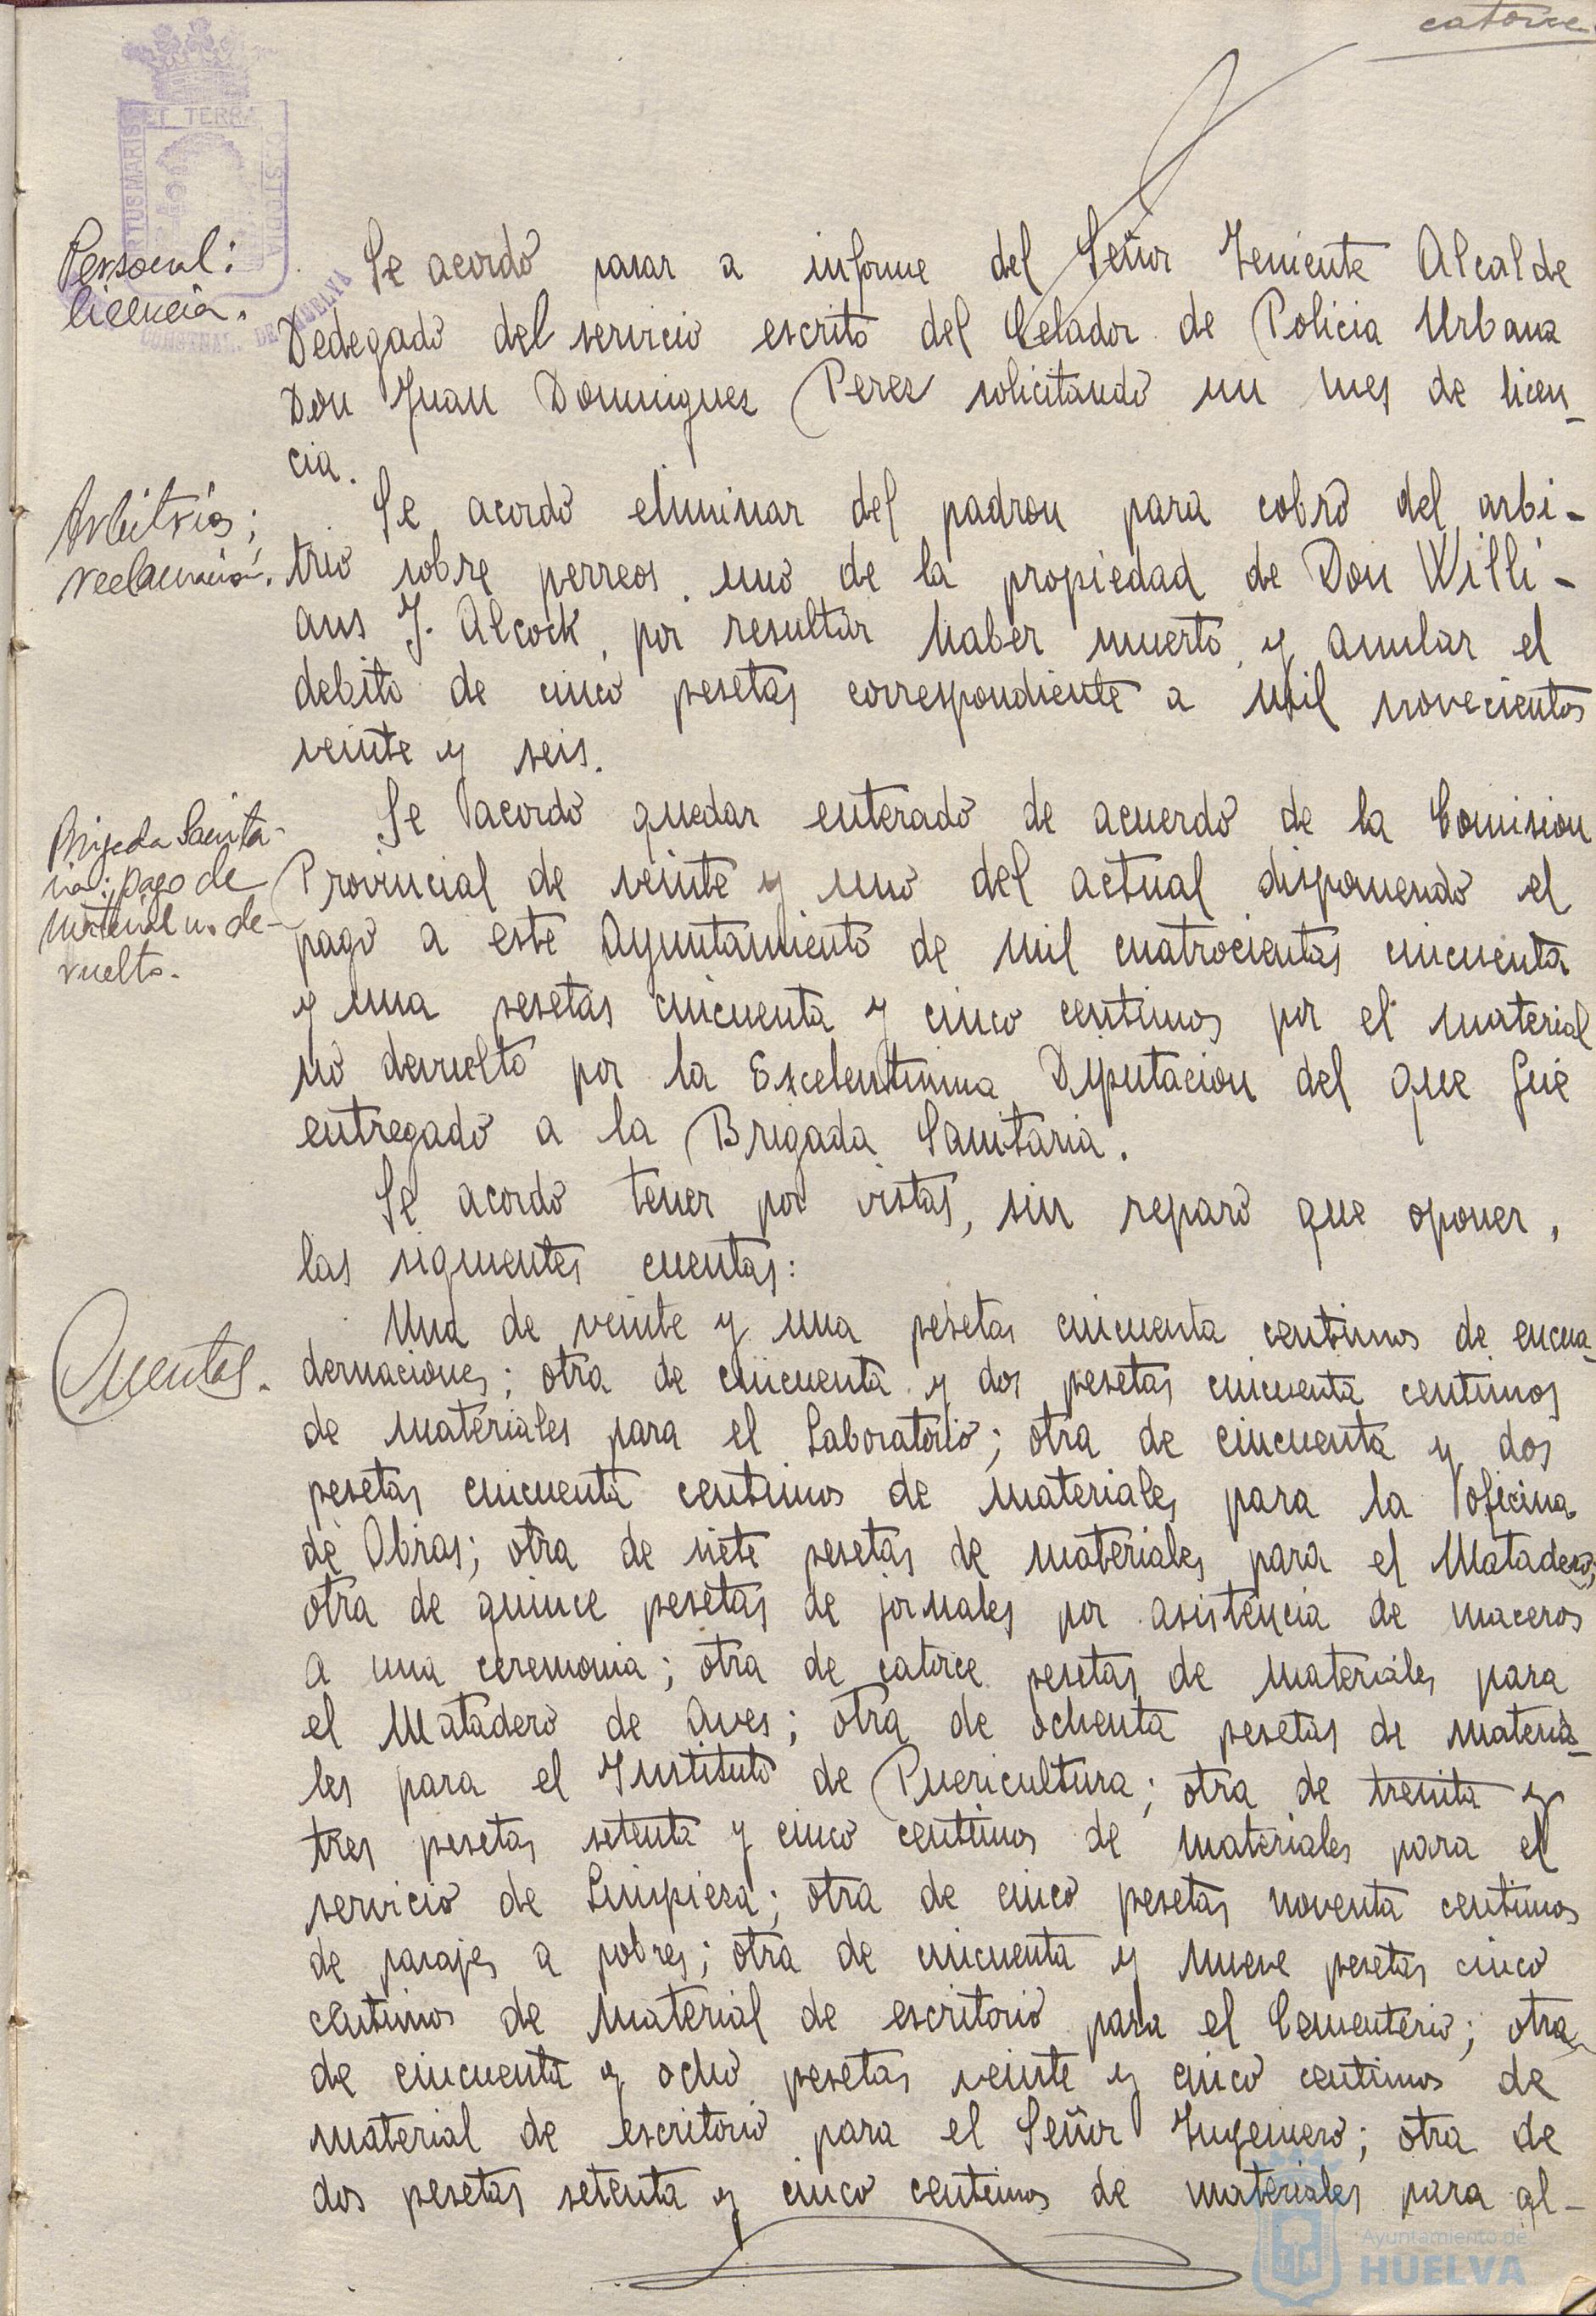 catorce.
ET TERRA
PORTUS MARIS
CUSTODIA
CONSERVAL. DE HUELVA
Personal:
licencia.
Se acordó pasar a informe del Señor Teniente Alcalde
Dedegado del servicio escrito del Celador de Policia Urbana
Don Juan Dominguez Perez solicitando un mes de licen-
cia.
Arbitrios;
reclamación.
Se acordó eliminar del padron para cobro del arbi-
trio sobre perreos uno de la propiedad de Don Willi-
ans J. Alcock, por resultar haber muerto, y anular el
debito de cinco pesetas correspondiente a mil novecientos
veinte y seis.
Brigada Sanita-
ria: pago de
material no de-
vuelto.
Se acordó quedar enterado de acuerdo de la Comision
Provincial de veinte y uno del actual disponiendo el
pago a este Ayuntamiento de mil cuatrocientas cincuenta
y una pesetas cincuenta y cinco centimos por el material
no devuelto por la Excelentisima Diputacion del que fue
entregado a la Brigada Sanitaria.
Se acordó tener por vistas, sin reparo que oponer,
las siguientes cuentas:
Cuentas.
Una de veinte y una pesetas cincuenta centimos de encua-
dernaciones; otra de cincuenta y dos pesetas cincuenta centimos
de materiales para el Laboratorio; otra de cincuenta y dos
pesetas cincuenta centimos de materiales para la oficina
de Obras; otra de siete pesetas de materiales para el Matadero;
otra de quince pesetas de jornales por asistencia de maceros
a una ceremonia; otra de catorce pesetas de materiales para
el Matadero de Aves; otra de ochenta pesetas de materia-
les para el Instituto de Puericultura; otra de treinta y
tres pesetas setenta y cinco centimos de materiales para el
servicio de Limpieza; otra de cinco pesetas noventa centimos
de pasajes a pobres; otra de cincuenta y nueve pesetas cinco
centimos de material de escritorio para el Cementerio; otra
de cincuenta y ocho pesetas veinte y cinco centimos de
material de escritorio para el Señor Ingeniero; otra de
dos pesetas setenta y cinco centimos de materiales para al-
Ayuntamiento de
HUELVA